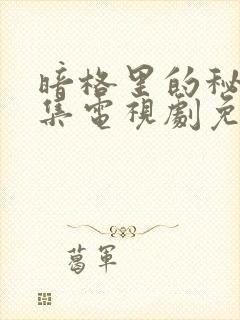 暗格里的秘
集电视剧免
葛军